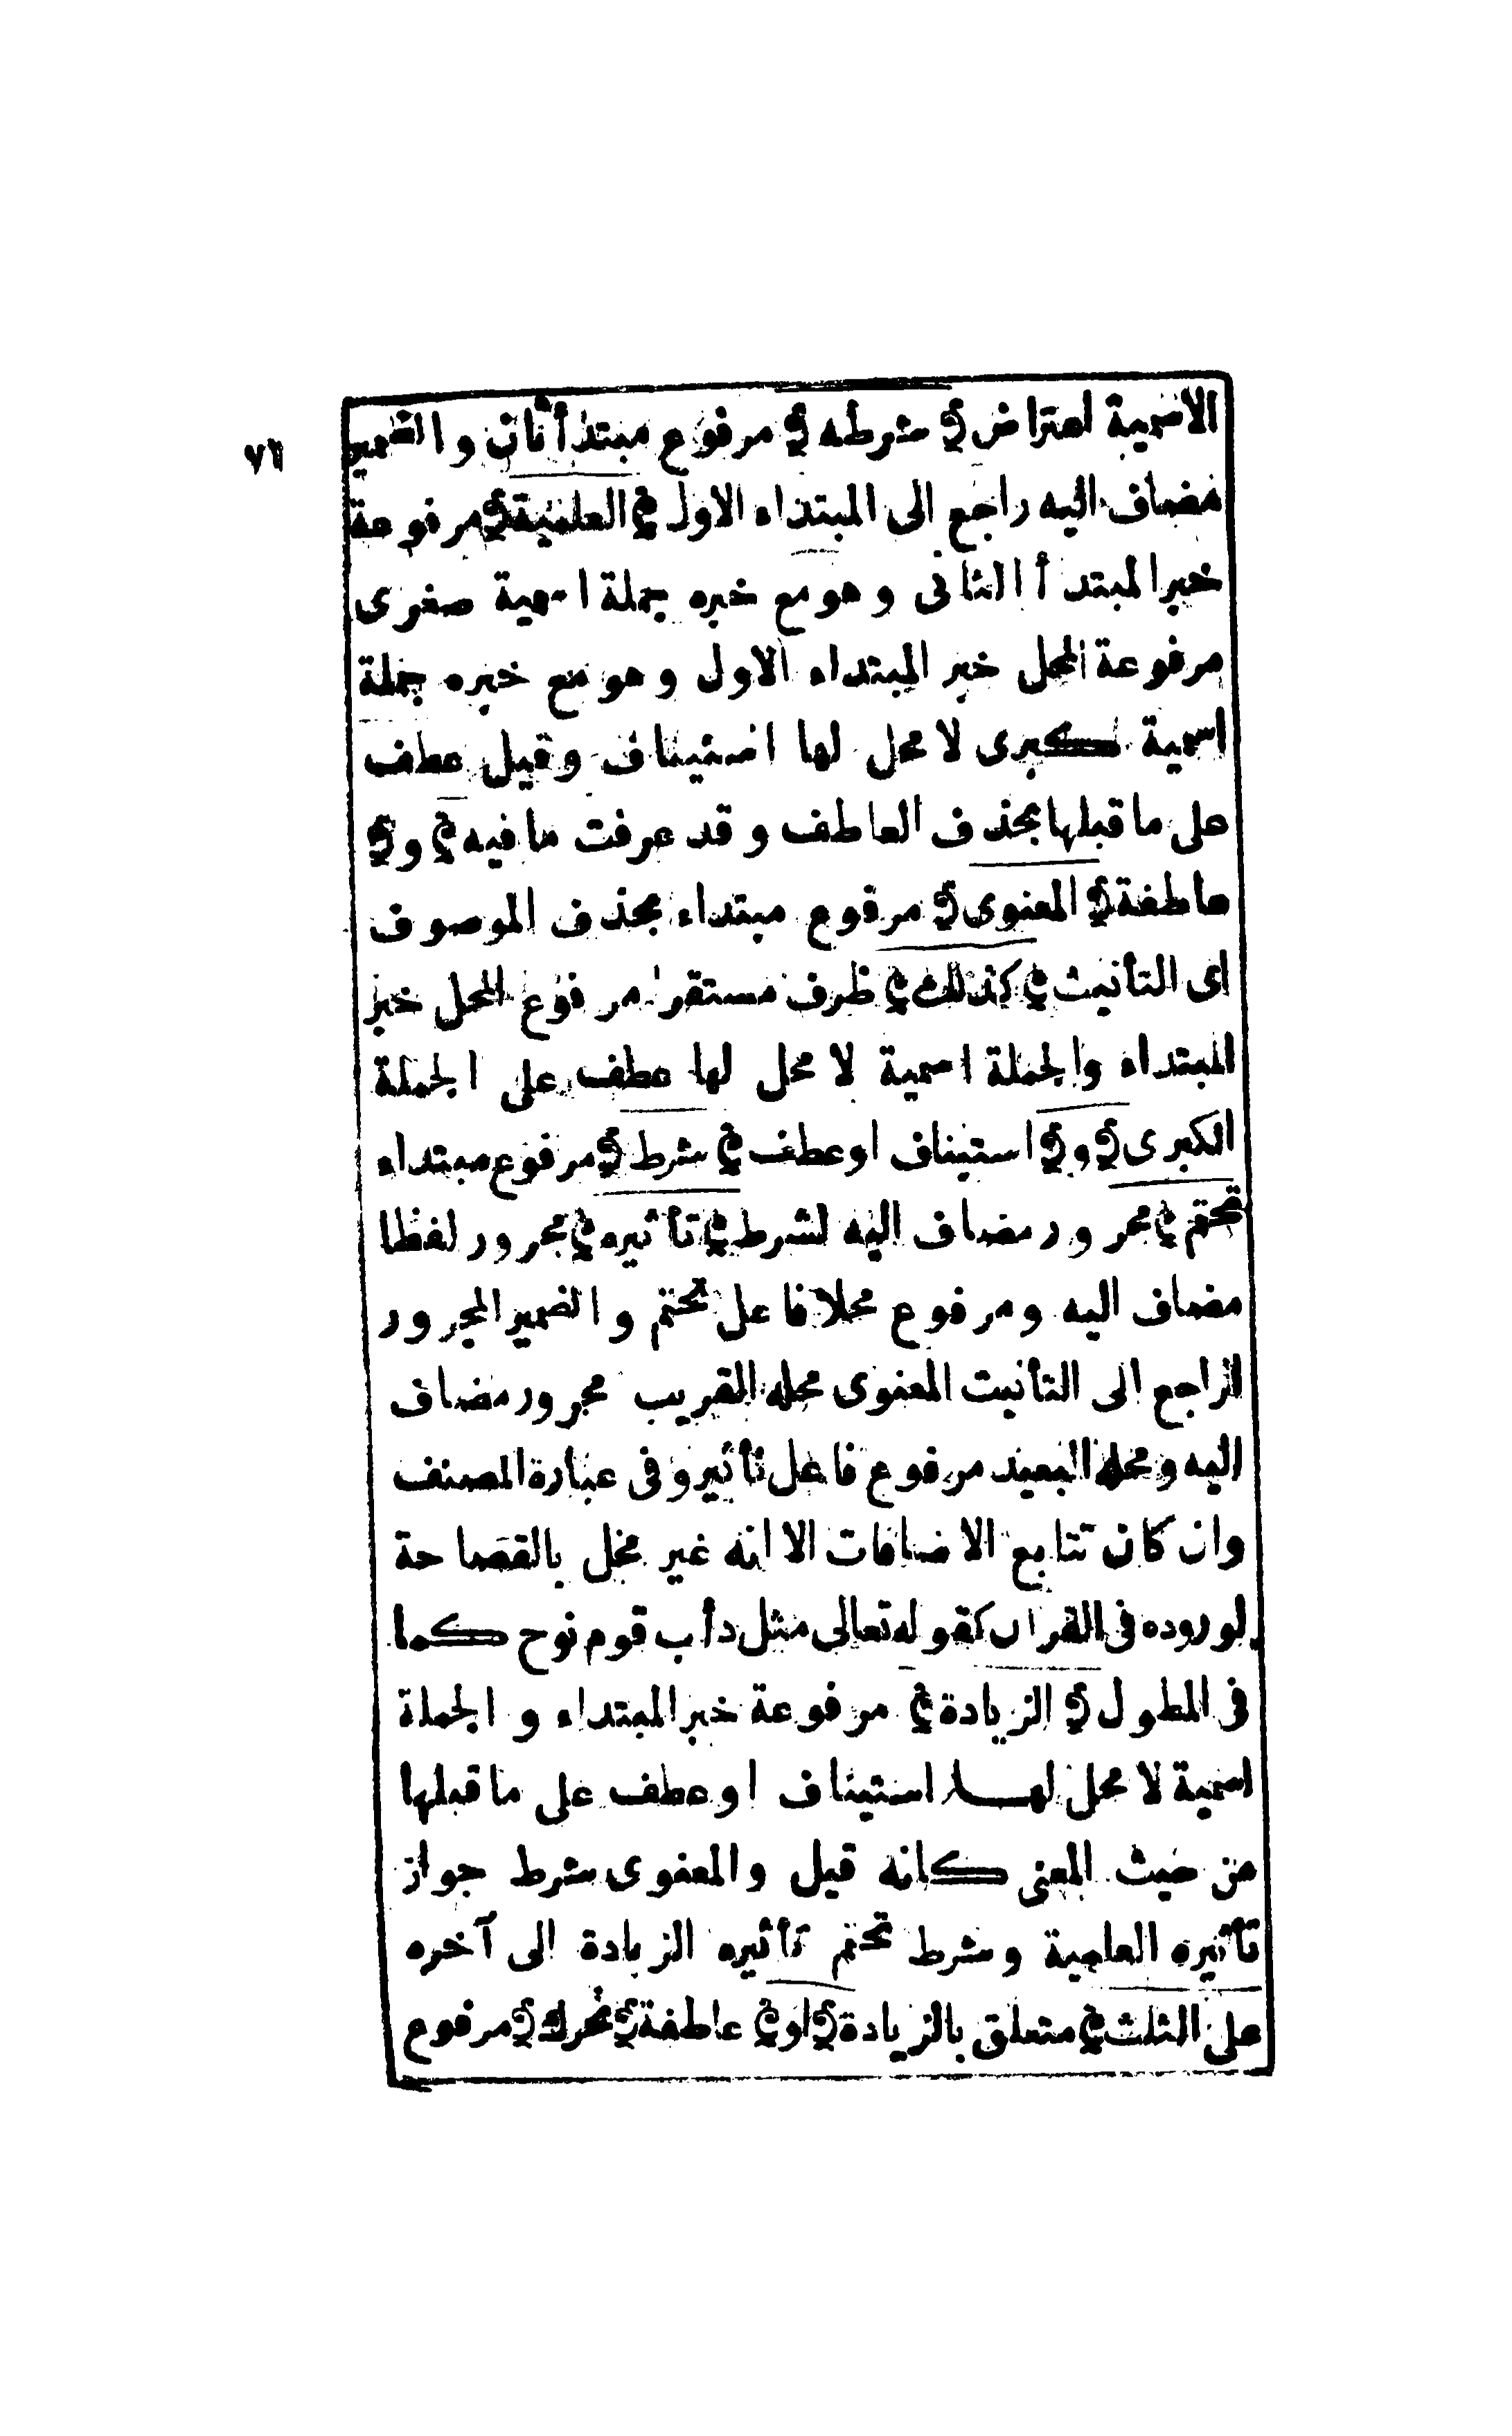 ٧٦
الاسمية اعتراض ﴿ شرطه ﴾ مرفوع مبتدأ ثان والضمير
مضاف اليه راجع الى المبتداء الاول ﴿ العلمية ﴾ مرفوعة
خبر المبتدأ الثانى وهو مع خبره جملة اسمية صغرى
مرفوعة المحل خبر المبتداء الاول وهو مع خبره جملة
اسمية كبرى لا محل لها استيناف وقيل عطف
على ما قبلها بحذف العاطف وقد عرفت ما فيه ﴿ و ﴾
عاطفة ﴿ المعنوى ﴾ مرفوع مبتداء بحذف الموصوف
اى التأنيث ﴿ كذلك ﴾ ظرف مستقر مرفوع المحل خبر
المبتداء والجملة اسمية لا محل لها عطف على الجملة
الكبرى ﴿ و ﴾ استيناف او عطف ﴿ شرط ﴾ مرفوع مبتداء
تحتم ﴾ مجرور مضاف اليه لشرط ﴿ تأثيره ﴾ مجرور لفظا
مضاف اليه ومرفوع محلا فاعل تحتم والضمير المجرور
الراجع الى التأنيت المعنوى محله القريب مجرور مضاف
اليه ومحله البعيد مرفوع فاعل تأثير وفى عبارة المصنف
وان كان تتابع الاضافات الا انه غير مخل بالفصاحة
لوروده فى القرآن كقوله تعالى مثل دأب قوم نوح كما
فى المطول ﴿ الزيادة ﴾ مرفوعة خبر المبتداء والجملة
اسمية لا محل لها استيناف او عطف على ما قبلها
من حيث المعنى كانه قيل والمعنوى شرط جواز
تأثيره العلمية وشرط تحتم تأثيره الزيادة الى آخره
على الثلث ﴾ متعلق بالزيادة ﴿ او ﴾ عاطفة ﴿ تحرك ﴾ مرفوع